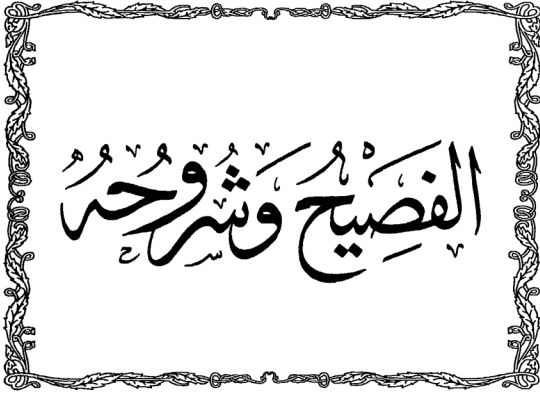 الفَصِيحُ وَشُرُوحُهُ